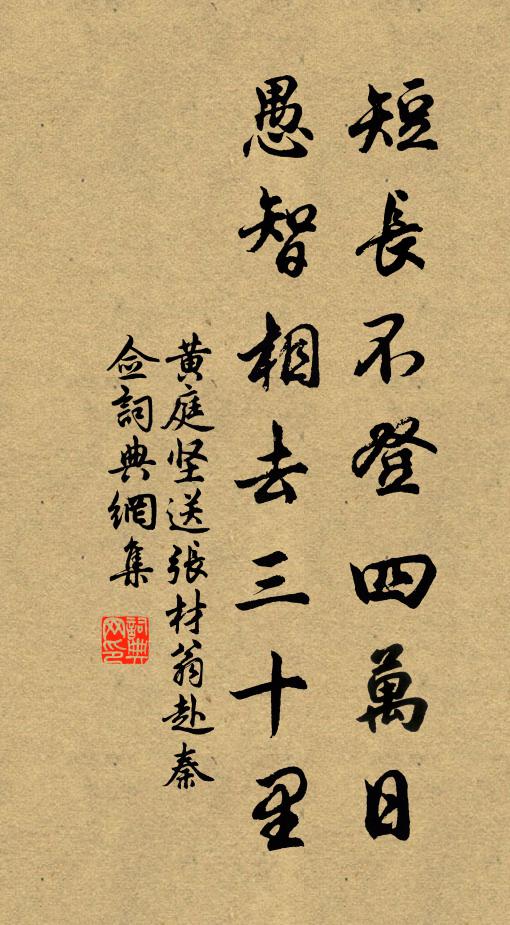 短長不登四萬日
愚智相去三十里
黄庭坚送張材翁赴秦
佥詞典網集
詞典网印